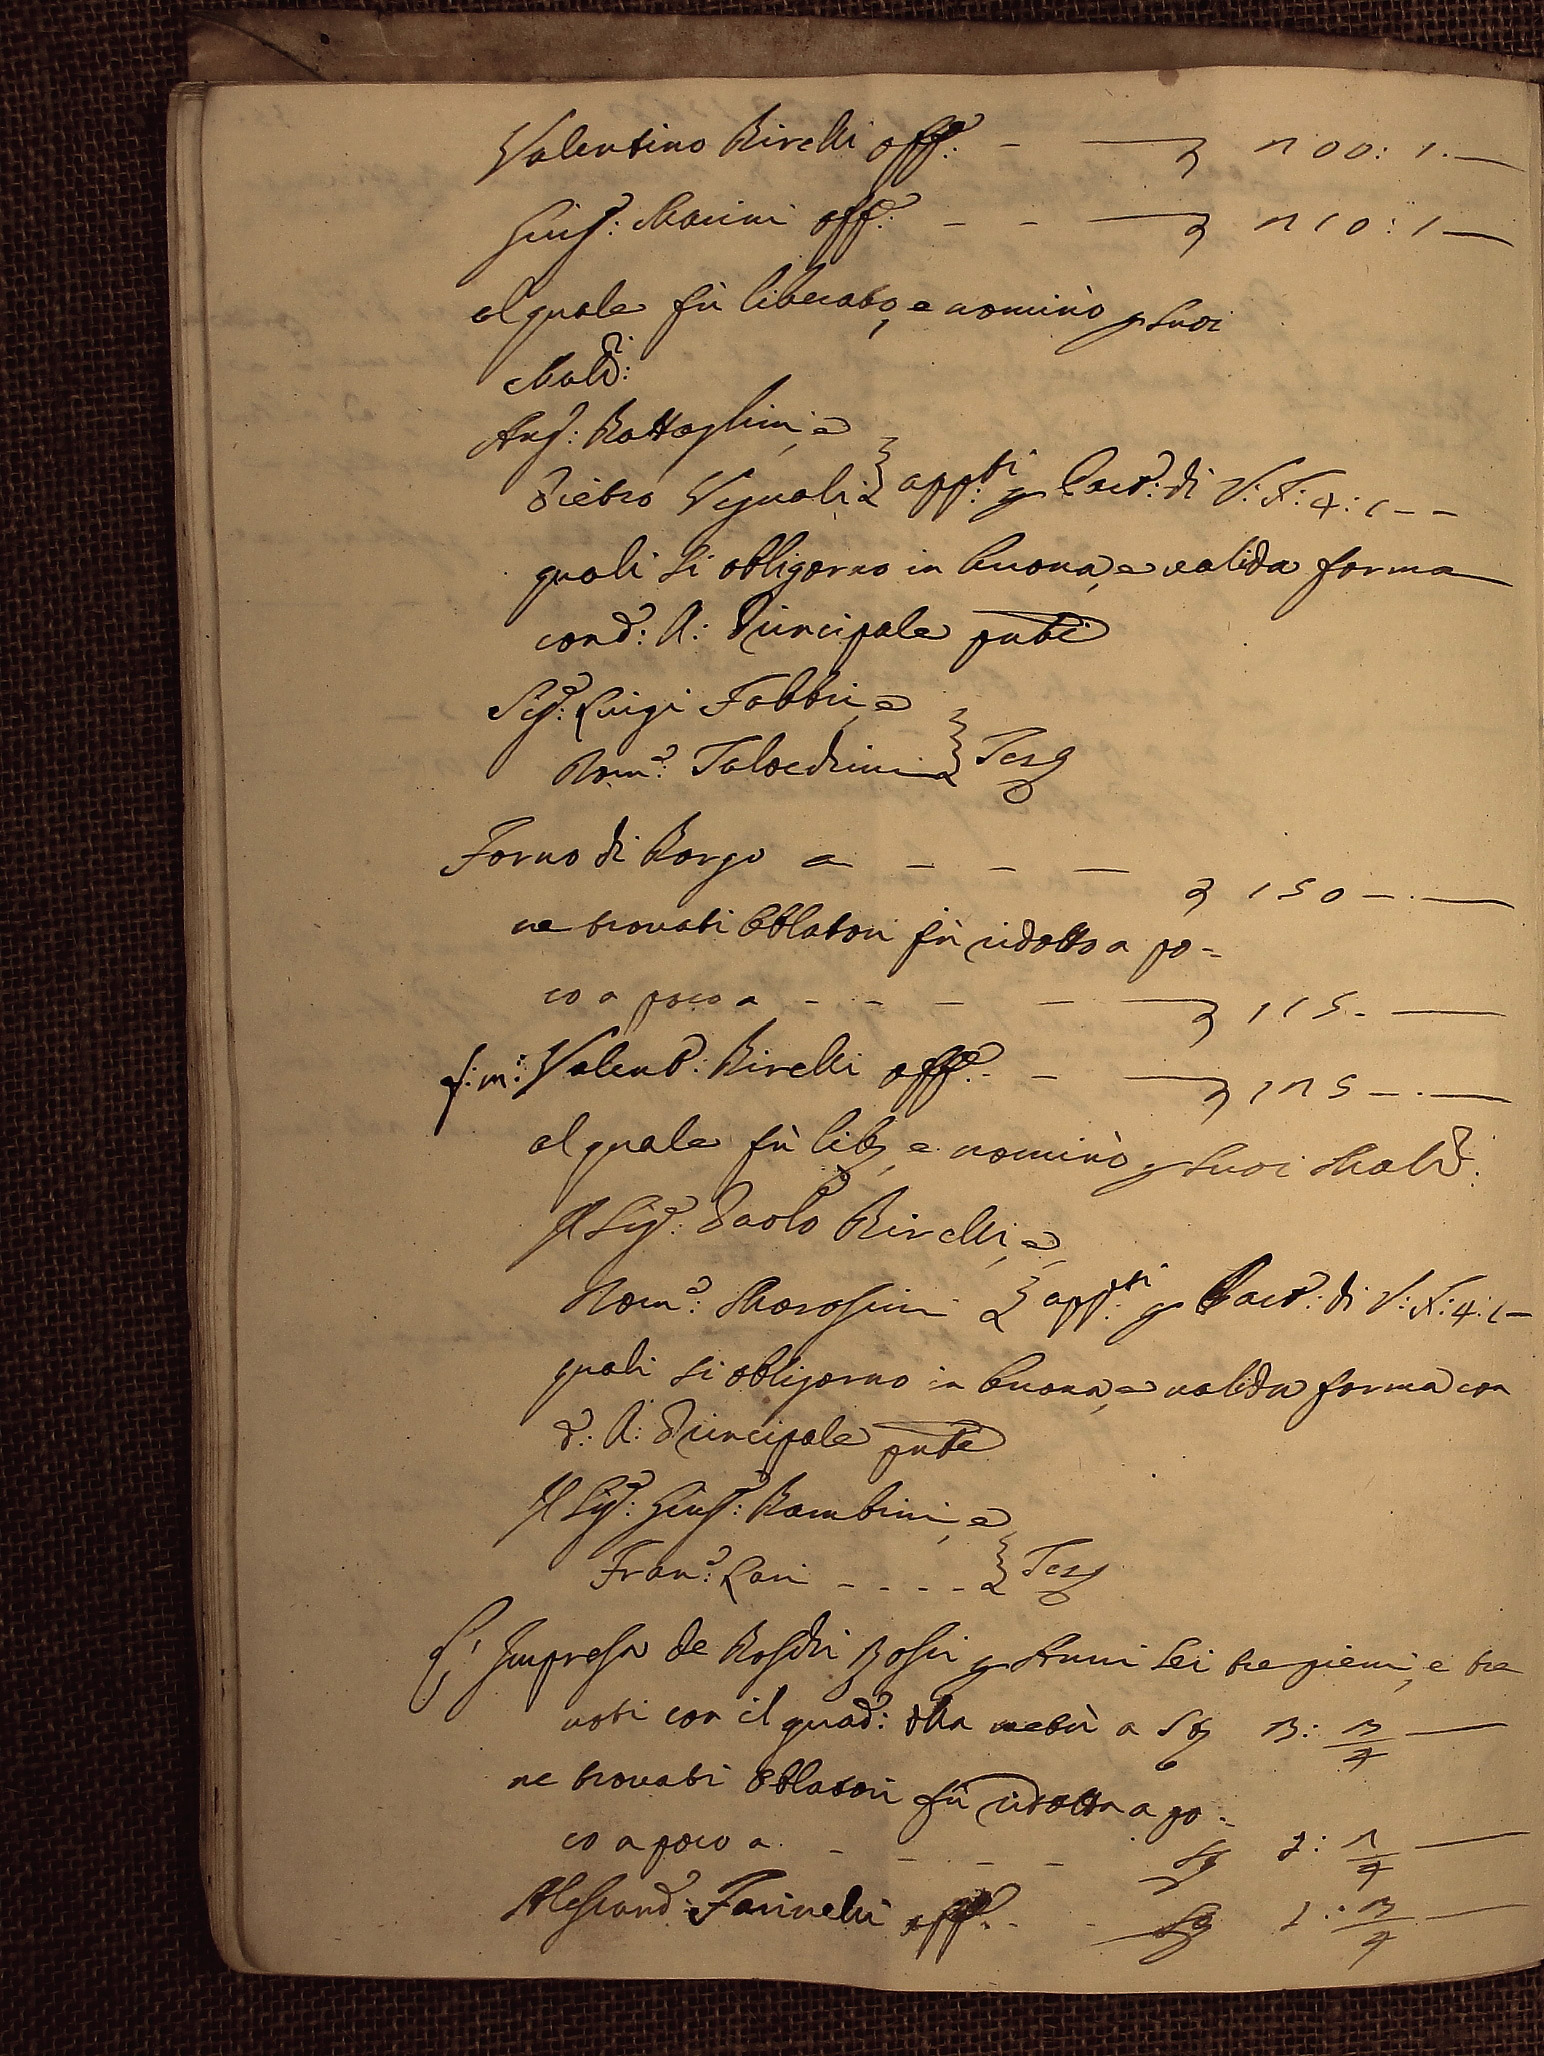 Valentino Birelli off.e: - — 200: 1. —
Gius.e: Marini off.e: - - — 210: 1 —
al quale fù liberato, e nominò p Suoi
Mald.ri:
Ang.: Battaglini, e
Pietro Vignali app.ti: p Part.: di
quali si obligorno in buona, e valida forma
con d.: A: Principale pnte
Sig.r: Luigi Fabbri, e
Dom.o: Talvedrini Tesg
Forno di Borgo a - - — 150 - . —
ne trovati Oblatori fù ridotto a po=
co a poco a - - - — — 115. —
f: m: Valent.o: Birelli off.e: - — 125 - . —
al quale fù lib, e nominò p Suoi Mald.:
Il Sig.r: Paolo Birelli, e
Dom.o: Morosini app.ti: p Part.: di
quali si obligorno in buona, e valida forma con
d.: A: Principale pnte
Il Sig.r: Gius.e: Bambini, e
Fran.o: Lari - - - - Tesg
Impresa de Boschi Bossi p Anni Sei tre pieni, e tre
voti con il quad.o: a
ne trovati Oblatori fù ridotta a po=
co a poco a. - - - -
Alessand.o: Farinelli off.e: -